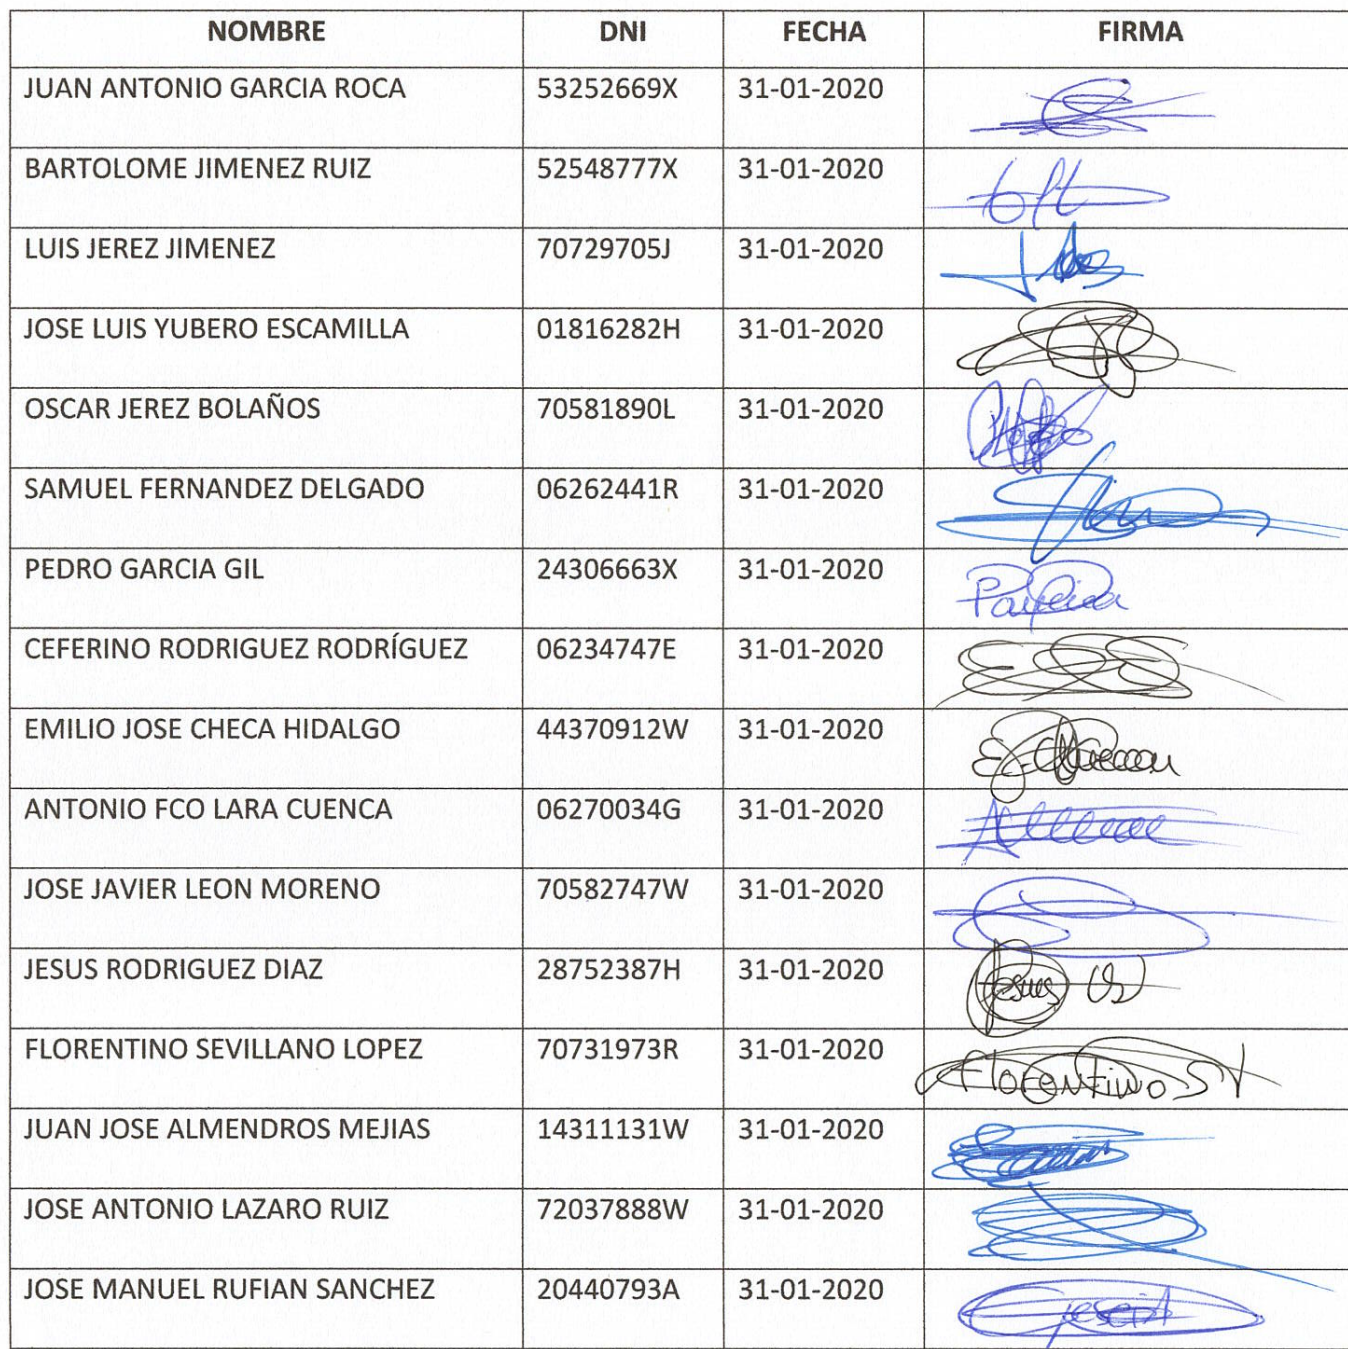 NOMBRE DNI FECHA FIRMA
JUAN ANTONIO GARCIA ROCA 53252669X 31-01-2020
BARTOLOME JIMENEZ RUIZ 52548777X 31-01-2020
LUIS JEREZ JIMENEZ 70729705J 31-01-2020
JOSE LUIS YUBERO ESCAMILLA 01816282H 31-01-2020
OSCAR JEREZ BOLAÑOS 70581890L 31-01-2020
SAMUEL FERNANDEZ DELGADO 06262441R 31-01-2020
PEDRO GARCIA GIL 24306663X 31-01-2020
CEFERINO RODRIGUEZ RODRÍGUEZ 06234747E 31-01-2020
EMILIO JOSE CHECA HIDALGO 44370912W 31-01-2020
ANTONIO FCO LARA CUENCA 06270034G 31-01-2020
JOSE JAVIER LEON MORENO 70582747W 31-01-2020
JESUS RODRIGUEZ DIAZ 28752387H 31-01-2020 Jesus
FLORENTINO SEVILLANO LOPEZ 70731973R 31-01-2020 Florentino S
JUAN JOSE ALMENDROS MEJIAS 14311131W 31-01-2020
JOSE ANTONIO LAZARO RUIZ 72037888W 31-01-2020
JOSE MANUEL RUFIAN SANCHEZ 20440793A 31-01-2020